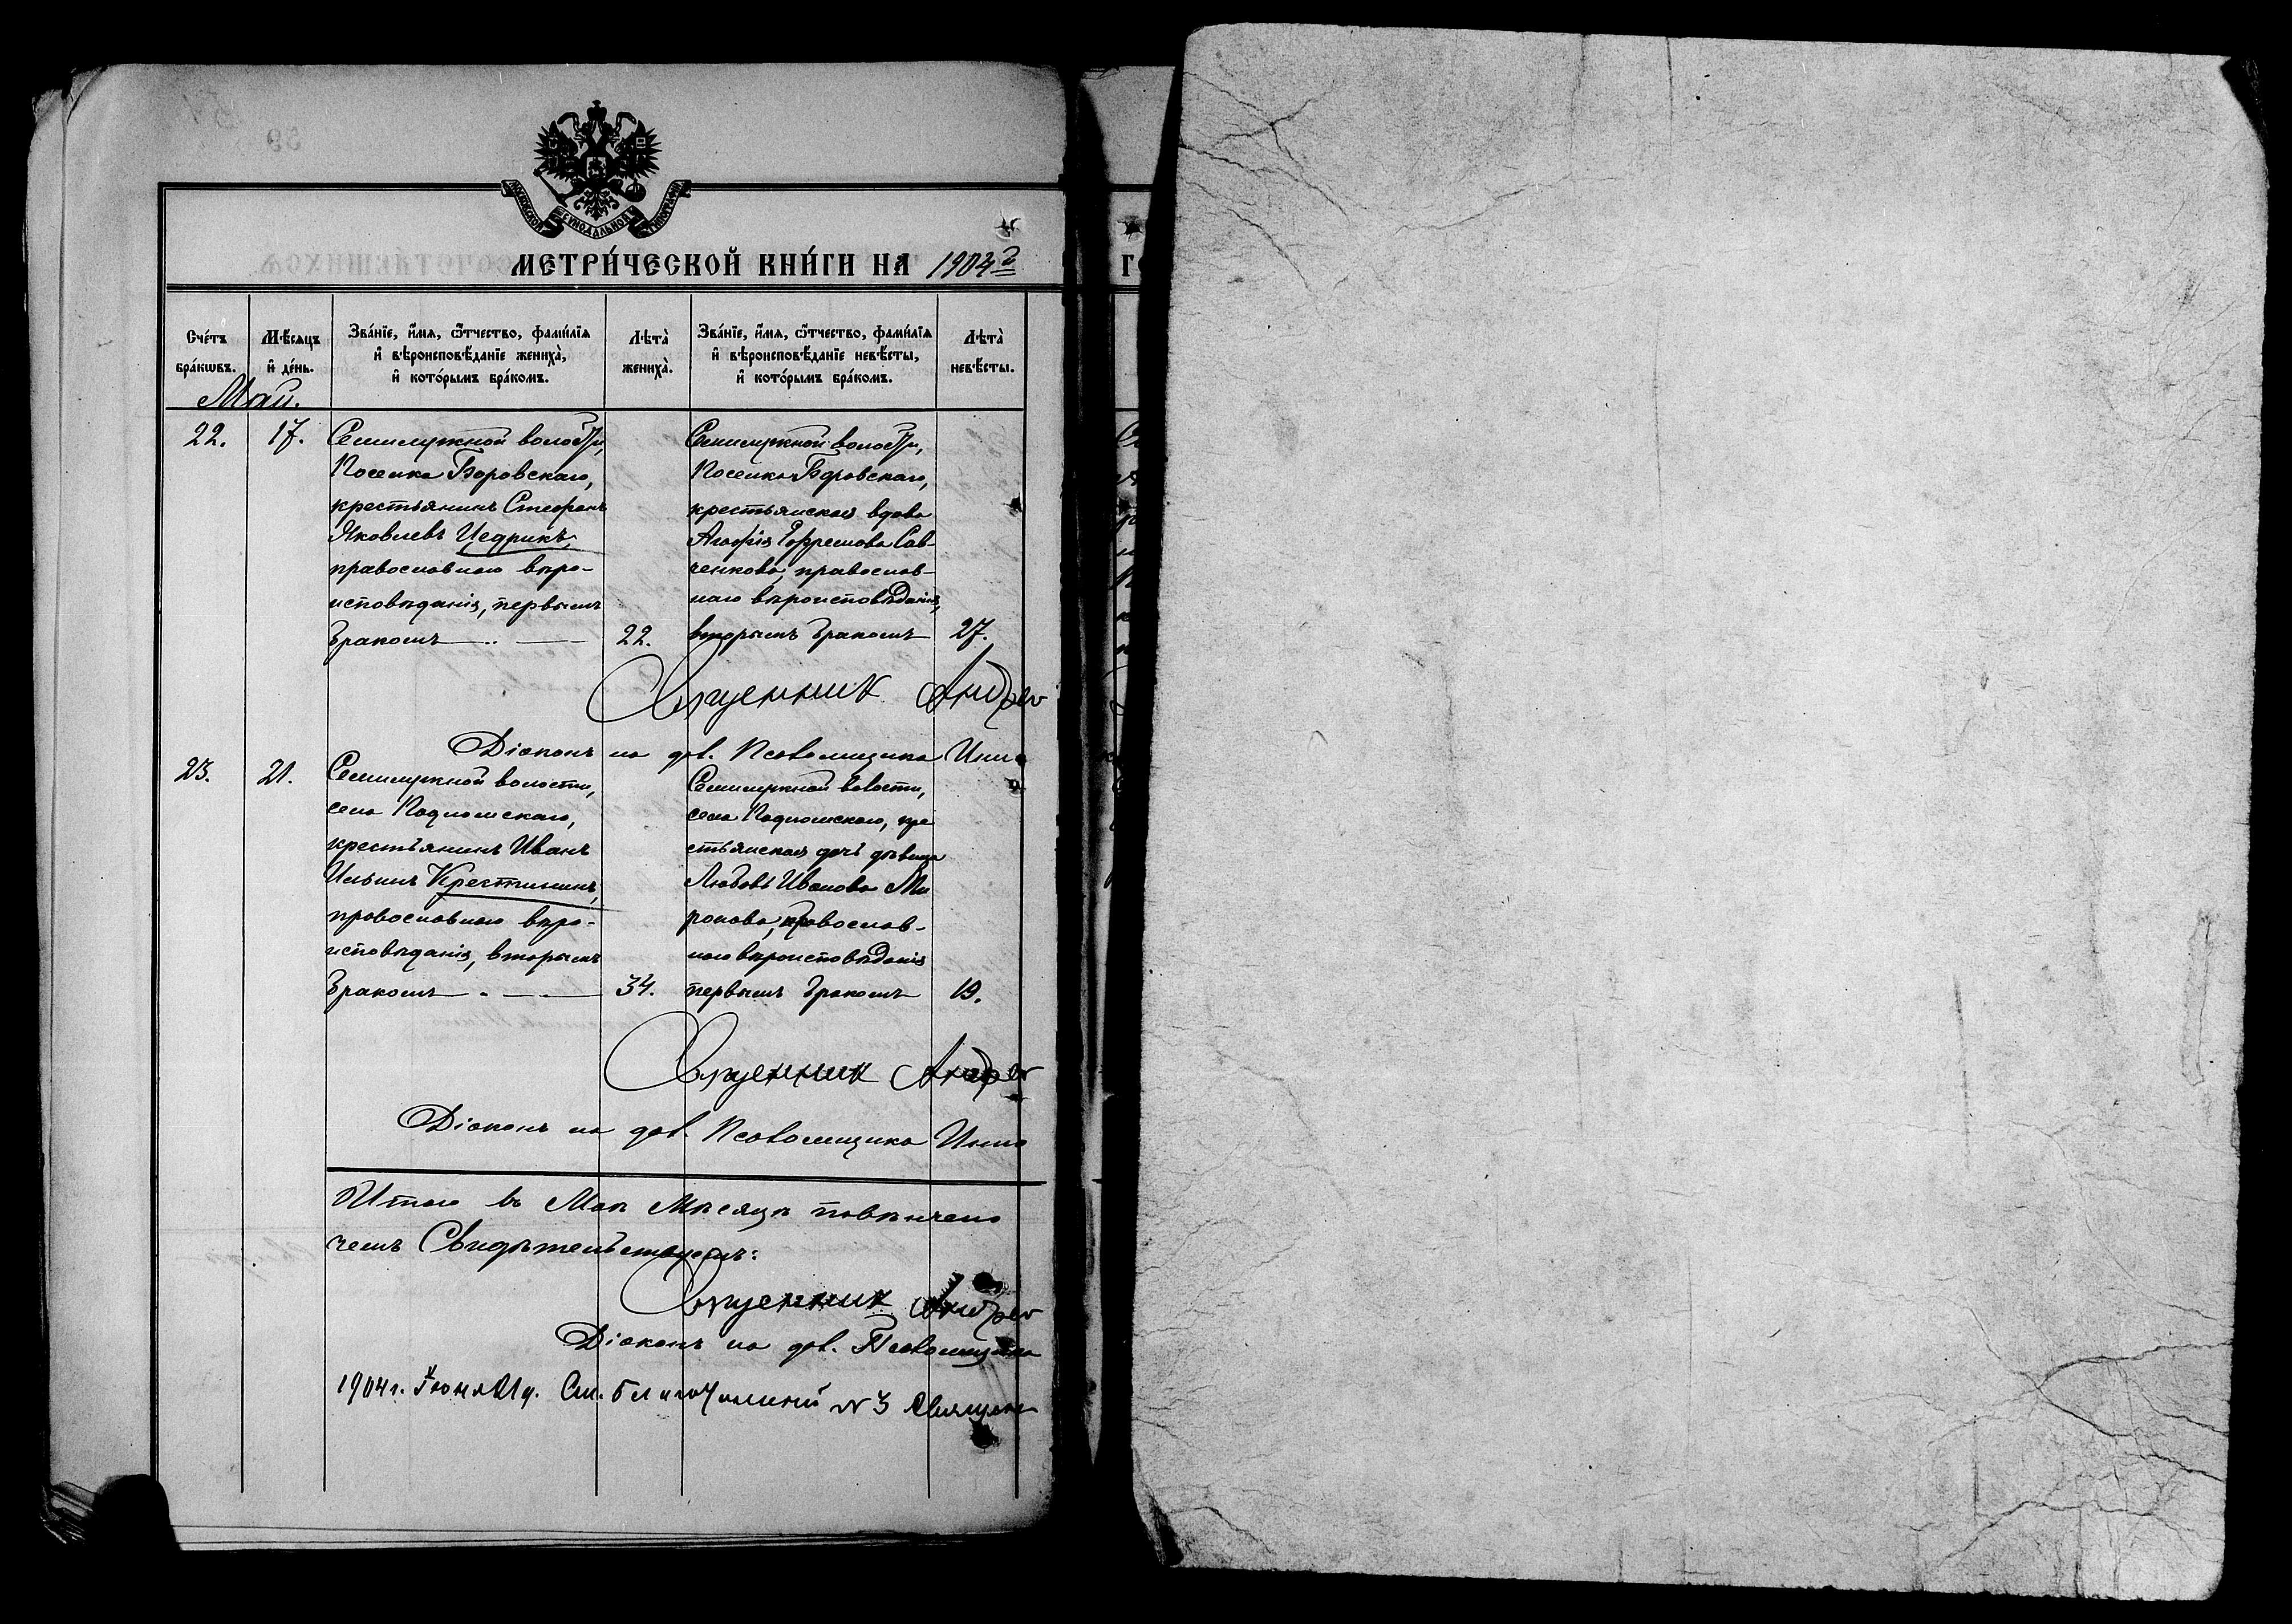 МОСКОВСКОЙ СѴНОДАЛЬНОЙ ТИПОГРАФІИ
МЕТРИ́ЧЕСКОЙ КНИ́ГИ НА 1904 г.
Сче́тъ бра́кѡвъ.
Мѣ́сяцъ и҆ де́нь.
Зва́нїе, и҆́мя, ѻ҆́тчество, фами́лїя
и҆ вѣроисповѣ́данїе жениха̀,
и҆ кото́рымъ бра́комъ.
Лѣта̀ жениха̀.
Зва́нїе, и҆́мя, ѻ҆́тчество, фами́лїя
и҆ вѣроисповѣ́данїе невѣ́сты,
и҆ кото́рымъ бра́комъ.
Лѣта̀ невѣ́сты.
Май.
22. 17.
Семилужной волости,
Поселка Боровскаго,
крестьянинъ Стефанъ
Яковлевъ Цедрикъ,
православнаго вѣро-
исповѣданія, первымъ
бракомъ 22.
Семилужной волости,
Поселка Боровскаго,
крестьянская вдова
Агафія Ефремова Сав-
ченкова, православ-
наго вѣроисповѣданія,
вторымъ бракомъ 27.
Священникъ Андре
Діаконъ на дол. Псаломщика Инно
23. 21.
Семилужной волости,
села Подломскаго,
крестьянинъ Иванъ
Ильинъ Крестининъ,
православнаго вѣро-
исповѣданія, вторымъ
бракомъ 34.
Семилужной волости,
села Подломскаго, кре
стьянская дочь дѣвица
Любовь Иванова Ми
ронова, православ-
наго вѣроисповѣданія
первымъ бракомъ 19.
Священникъ Андре
Діаконъ на дол. Псаломщика Инно
Итого въ Маѣ Мѣсяцѣ повѣнчано
чемъ Свидѣтельствуемъ:
Священникъ Андре
Діаконъ на дол. Псаломщика
1904 г. Іюня См. Благочинный № 3 Священ